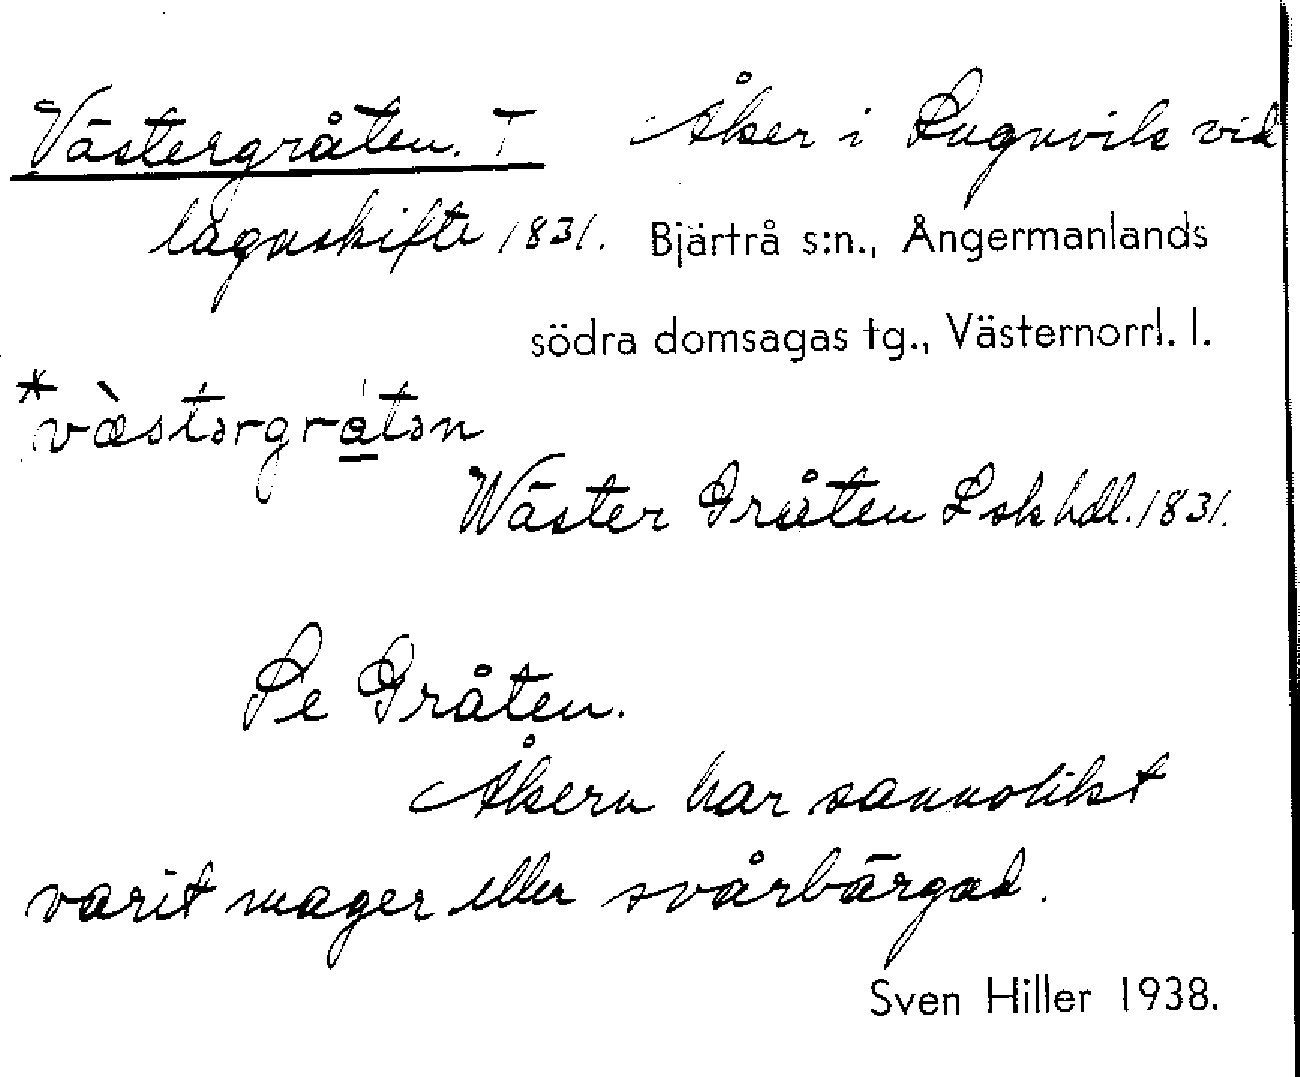 Västergråten. T Åker i Lugnvik vid
lagaskifte 1831. Bjärtrå s:n., Ångermanlands
södra domsagas tg., Västernorrl. l.
*væ̀stərgrátən
Wäster Gråten Lsk hdl. 1831.
Se Gråten.
Åkern har sannolikt
varit mager eller svårbärgad.
Sven Hiller 1938.